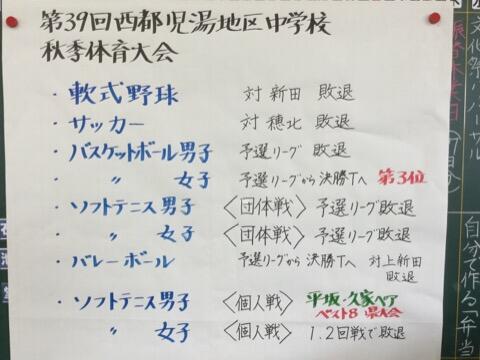 第39回西都児湯地区中学校
秋季体育大会
・軟式野球 対新田 敗退
・サッカー 対穂北 敗退
・バスケットボール男子 予選リーグ 敗退
・〃 女子 予選リーグから決勝Tへ 第3位
・ソフトテニス男子 〈団体戦〉予選リーグ敗退
・〃 女子 〈団体戦〉予選リーグ敗退
・バレーボール 予選リーグから決勝Tへ 対上新田
敗退
・ソフトテニス男子 〈個人戦〉 平坂・久家ペア
ベスト8 県大会
〃 女子 〈個人戦〉 1.2回戦で敗退
自分で作る「弁当